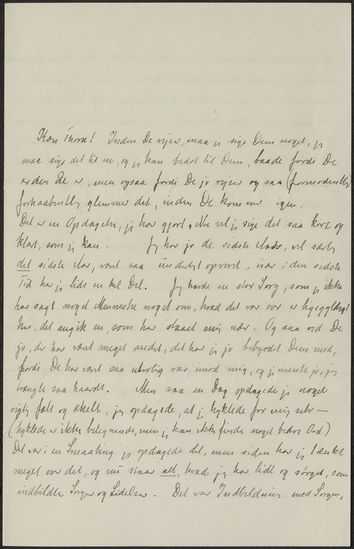 Kære Thora! Inden De rejser, maa jeg sige Dem noget, jeg
maa sige det til en, og jeg kan bedst til Dem, baade fordi De
er den De er, men ogsaa fordi De jo rejser og saa (formodentlig)
forhaabentlig glemmer det, inden De kommer igen.
Det er en Opdagelse, jeg har gjort. Nu vil jeg sige det saa kort og
klart, som jeg kan. Jeg har jo de sidste Aar, vel særlig
det sidste Aar, været saa underligt oprevet, især i den sidste
Tid har jeg lidt en hel Del. Jeg havde en stor Sorg, som jeg ikke
har sagt noget Menneske noget om, hvad det var over er ligegyldigt
her, det angik en, som har staaet mig nær. Og saa ved De
jo, der har været meget andet, det har jeg jo bebyrdet Dem med,
fordi De har været saa utrolig rar mod mig, og jeg mente jo jeg
trængte saa haardt. Men saa en Dag opdagede jeg noget
rigtig fælt og ækelt, jeg opdagede, at jeg hyklede for mig selv –
(hyklede er ikke betegnende, men jeg kan ikke finde noget bedre Ord)
Det var i en Smaating jeg opdagede det, men siden har jeg tænkt
meget over det, og nu staar alt, hvad jeg har lidt og sørget, som
indbildte Sorger og Lidelser. Det var Indbildning med Sorgen,